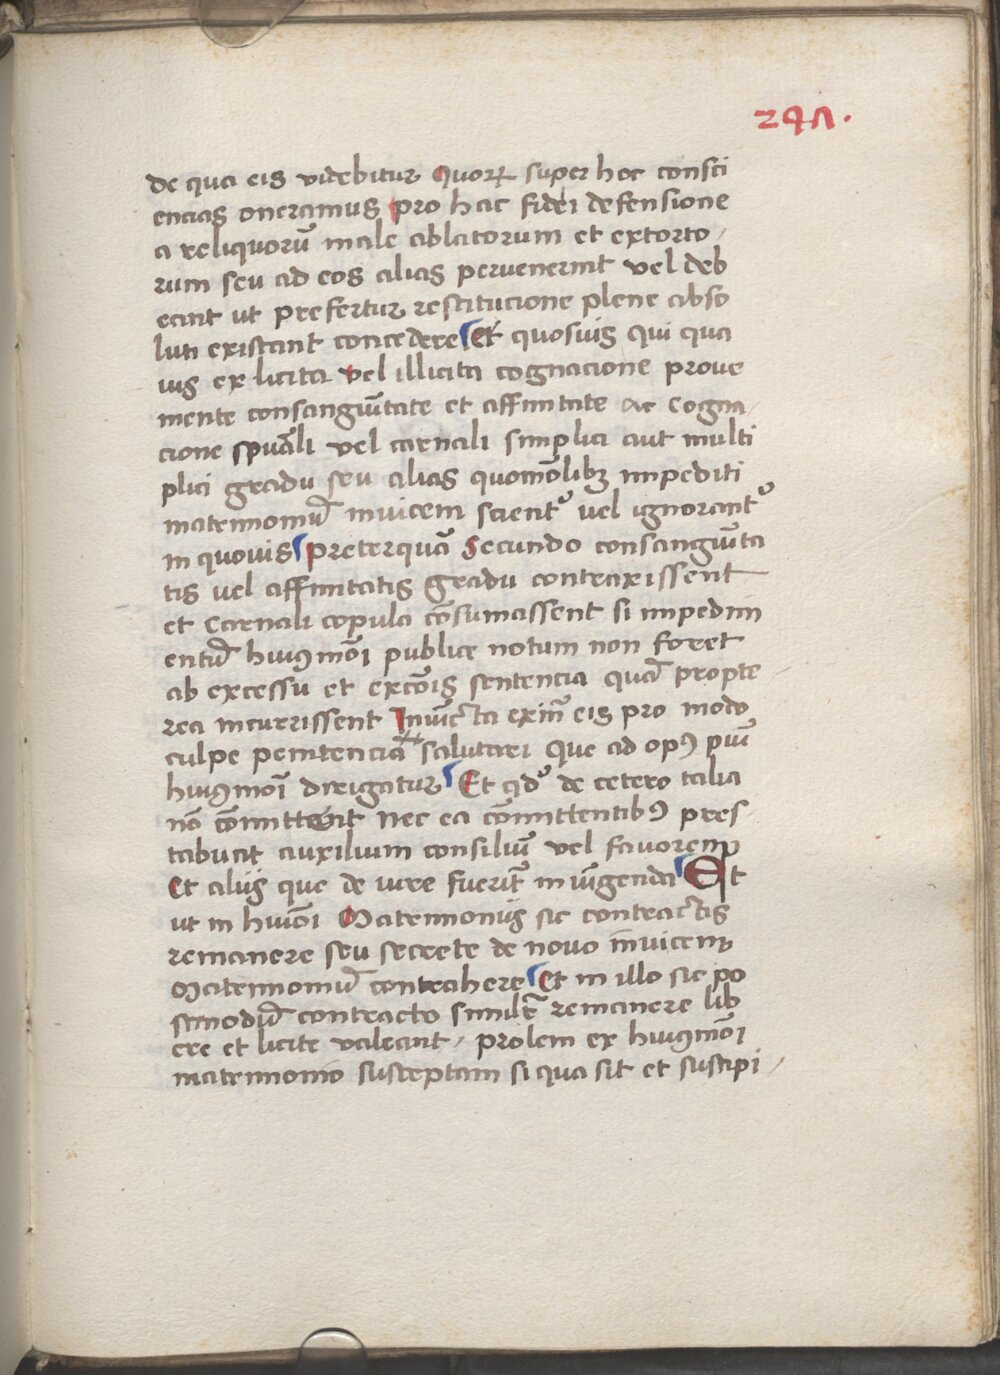 247.
de qua eis videbitur Quoꝝ super hoc consci
encias oneramus pro hac fidei defensione
a reliquorū male ablatorum et extorto
rum seu ad eos alias peruenerint vel deb
eant ut prefertur restitucione plene abso
luti existant concedere Et quosuis qui qua
uis ex licita vel illicita cognacione proue
niente consanguītate et affinitate ac cogna
cione spūali vel carnali simplici aut multi
plici gradu seu alias quomōlibꝫ impediti
matrimoniū inuicem scient᷑ uel ignorant᷑
in quouis preterquā secundo consanguīta
tis vel affinitatis gradu contraxissent
et carnali copula cōsumassent si impedim
entū huiꝯmōi publice notum non foret
ab excessu et excōis sentencia quā propte
rea incurrissent Iniūcta exīn eis pro modo
culpe penitencia salutari que ad opꝯ piū
huiꝯmōi dirigatur Et qdᵒ de cetero talia
nō cōmittent nec ea cōmittentibꝯ pres
tabunt auxilium consiliū vel fauorem
Et alijs que de iure fuerīt iniūgenda Et
ut in huiōi Matrimonijs sic contractis
remanere seu secrete de nouo inuicem
Matrimoniū contrahere Et in illo sic po
stmodū contracto similr̄ remanere lib
ere et licite valeant prolem ex huiꝯmōi
matrimonio susceptam si qua sit et suscipi